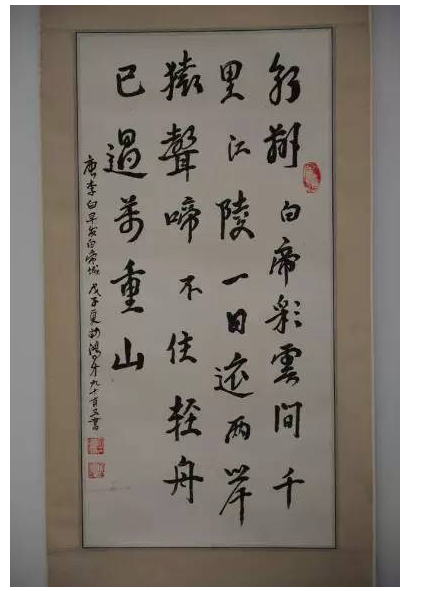 朝辭白帝彩雲間千
里江陵一日還兩岸
猿聲啼不住輕舟
已過萬重山
唐李白早发白帝城 戊子夏 年九十有五書